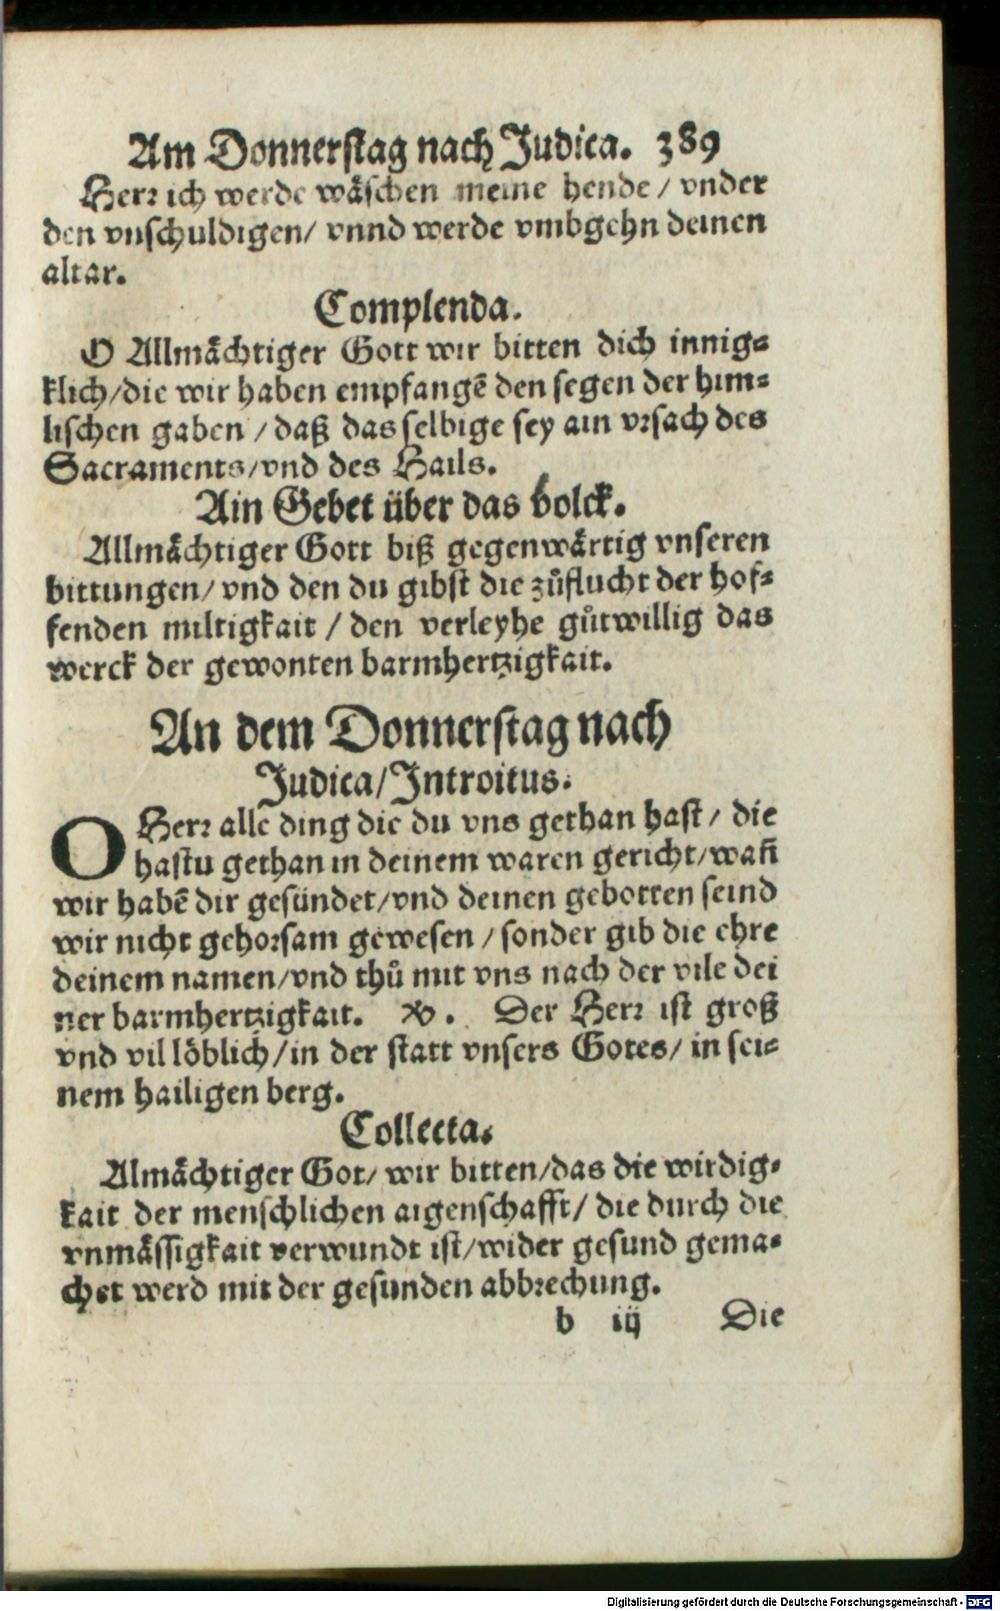 Am Donnerstag nach Judica. 389
Herr ich werde wäschen meine hende / vnder
den vnschuldigen / vnnd werde vmbgehn deinen
altar.
Complenda.
O Allmächtiger Gott wir bitten dich innig-
klich / die wir haben empfangē den segen der him-
lischen gaben / daß das selbige sey ain vrsach des
Sacraments / vnd des Hails.
Ain Gebet über das volck.
Allmächtiger Gott biß gegenwärtig vnseren
bittungen / vnd den du gibst die zůflucht der hof-
fenden miltigkait / den verleyhe gůtwillig das
werck der gewonten barmhertzigkait.
An dem Donnerstag nach
Judica / Introitus.
O Herr alle ding die du vns gethan hast / die
hastu gethan in deinem waren gericht / wañ
wir habē dir gesündet / vnd deinen gebotten seind
wir nicht gehorsam gewesen / sonder gib die ehre
deinem namen / vnd thů mit vns nach der vile dei
ner barmhertzigkait. ℣. Der Herr ist groß
vnd vil löblich / in der statt vnsers Gotes / in sei-
nem hailigen berg.
Collecta.
Almächtiger Got / wir bitten / das die wirdig-
kait der menschlichen aigenschafft / die durch die
vnmässigkait verwundt ist / wider gesund gema-
chet werd mit der gesunden abbrechung.
b iij Die
Digitalisierung gefördert durch die Deutsche Forschungsgemeinschaft - DFG